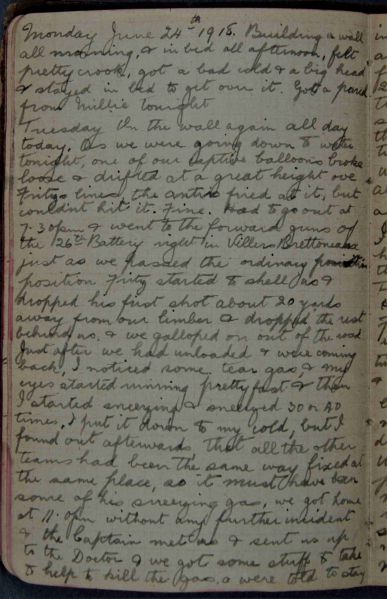 Monday June 24th 1918. Building a wall
all morning, & in bed all afternoon, felt
pretty crook, got a bad cold & a big head
& stayed in bed to get over it. Got a parcel
from Millie tonight
Tuesday On the wall again all day
today. As we were going down to water
tonight, one of our captive balloons broke
loose & drifted at a great height over
Fritz's lines, the anties fired at it, but
couldn't hit it. Fine. Had to go out at
7.30pm & went to the forward guns of
the 26th Battery right in Villers Brettoneaux
just as we passed the ordinary
position Fritz started to shell us &
dropped his first shot about 20 yards
away from our limber & dropped the rest
behind us, & we galloped on out of the road
Just after we had unloaded & were coming
back, I noticed some tear gas, & my
eyes started running pretty fast & then
I started sneezing & sneezed 30 or 40
times, I put it down to my cold, but I
found out afterwards that all the other
teams had been the same way fixed at
the same place, so it must have been
some of his sneezing gas, we got home
at 11.0pm without any further incident
& the Captain met us & sent us up
to the Doctor & we got some stuff to take
to help to kill the gas, & were told to stay